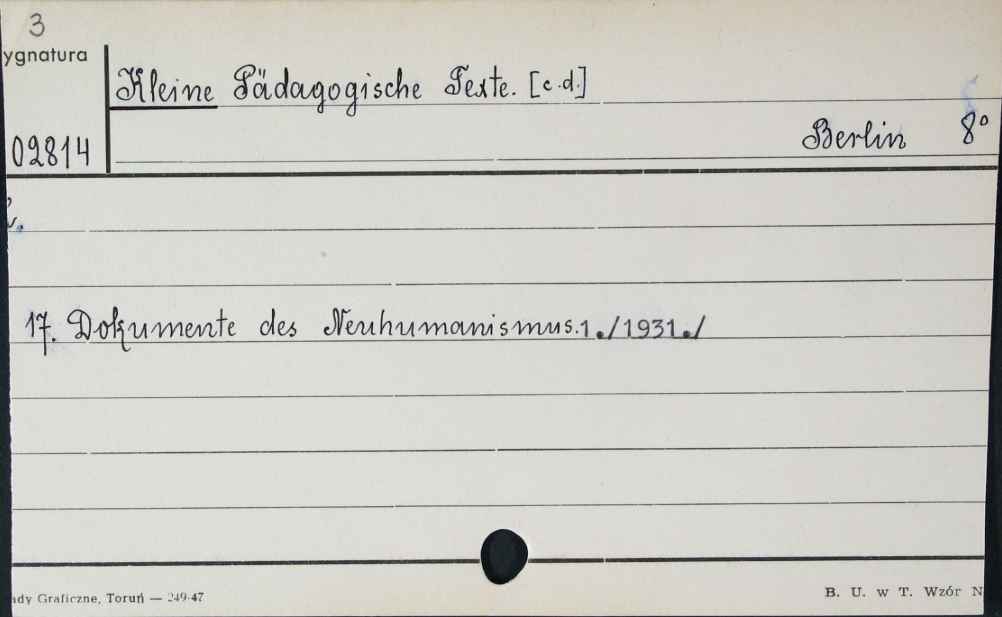 3
ygnatura
Kleine Pädagogische Texte. [c.d.]
Berlin 8°
02814
17. Dokumente des Neuhumanismus.1./1931./
ady Graficzne, Toruń — 249-47
B. U. w T. Wzór N